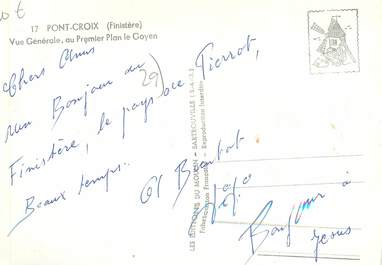 17 PONT-CROIX (Finistère)
Vue Générale, au Premier Plan le Goyen
Chers Amis
Un Bonjour du
Finistère, le pays de Pierrot,
Beaux temps.
29
à Bientôt
Bonjour à
LES EDITIONS DU MOULIN - SARTROUVILLE (S.-&-O.)
Fabrication Française - Reproduction Interdite